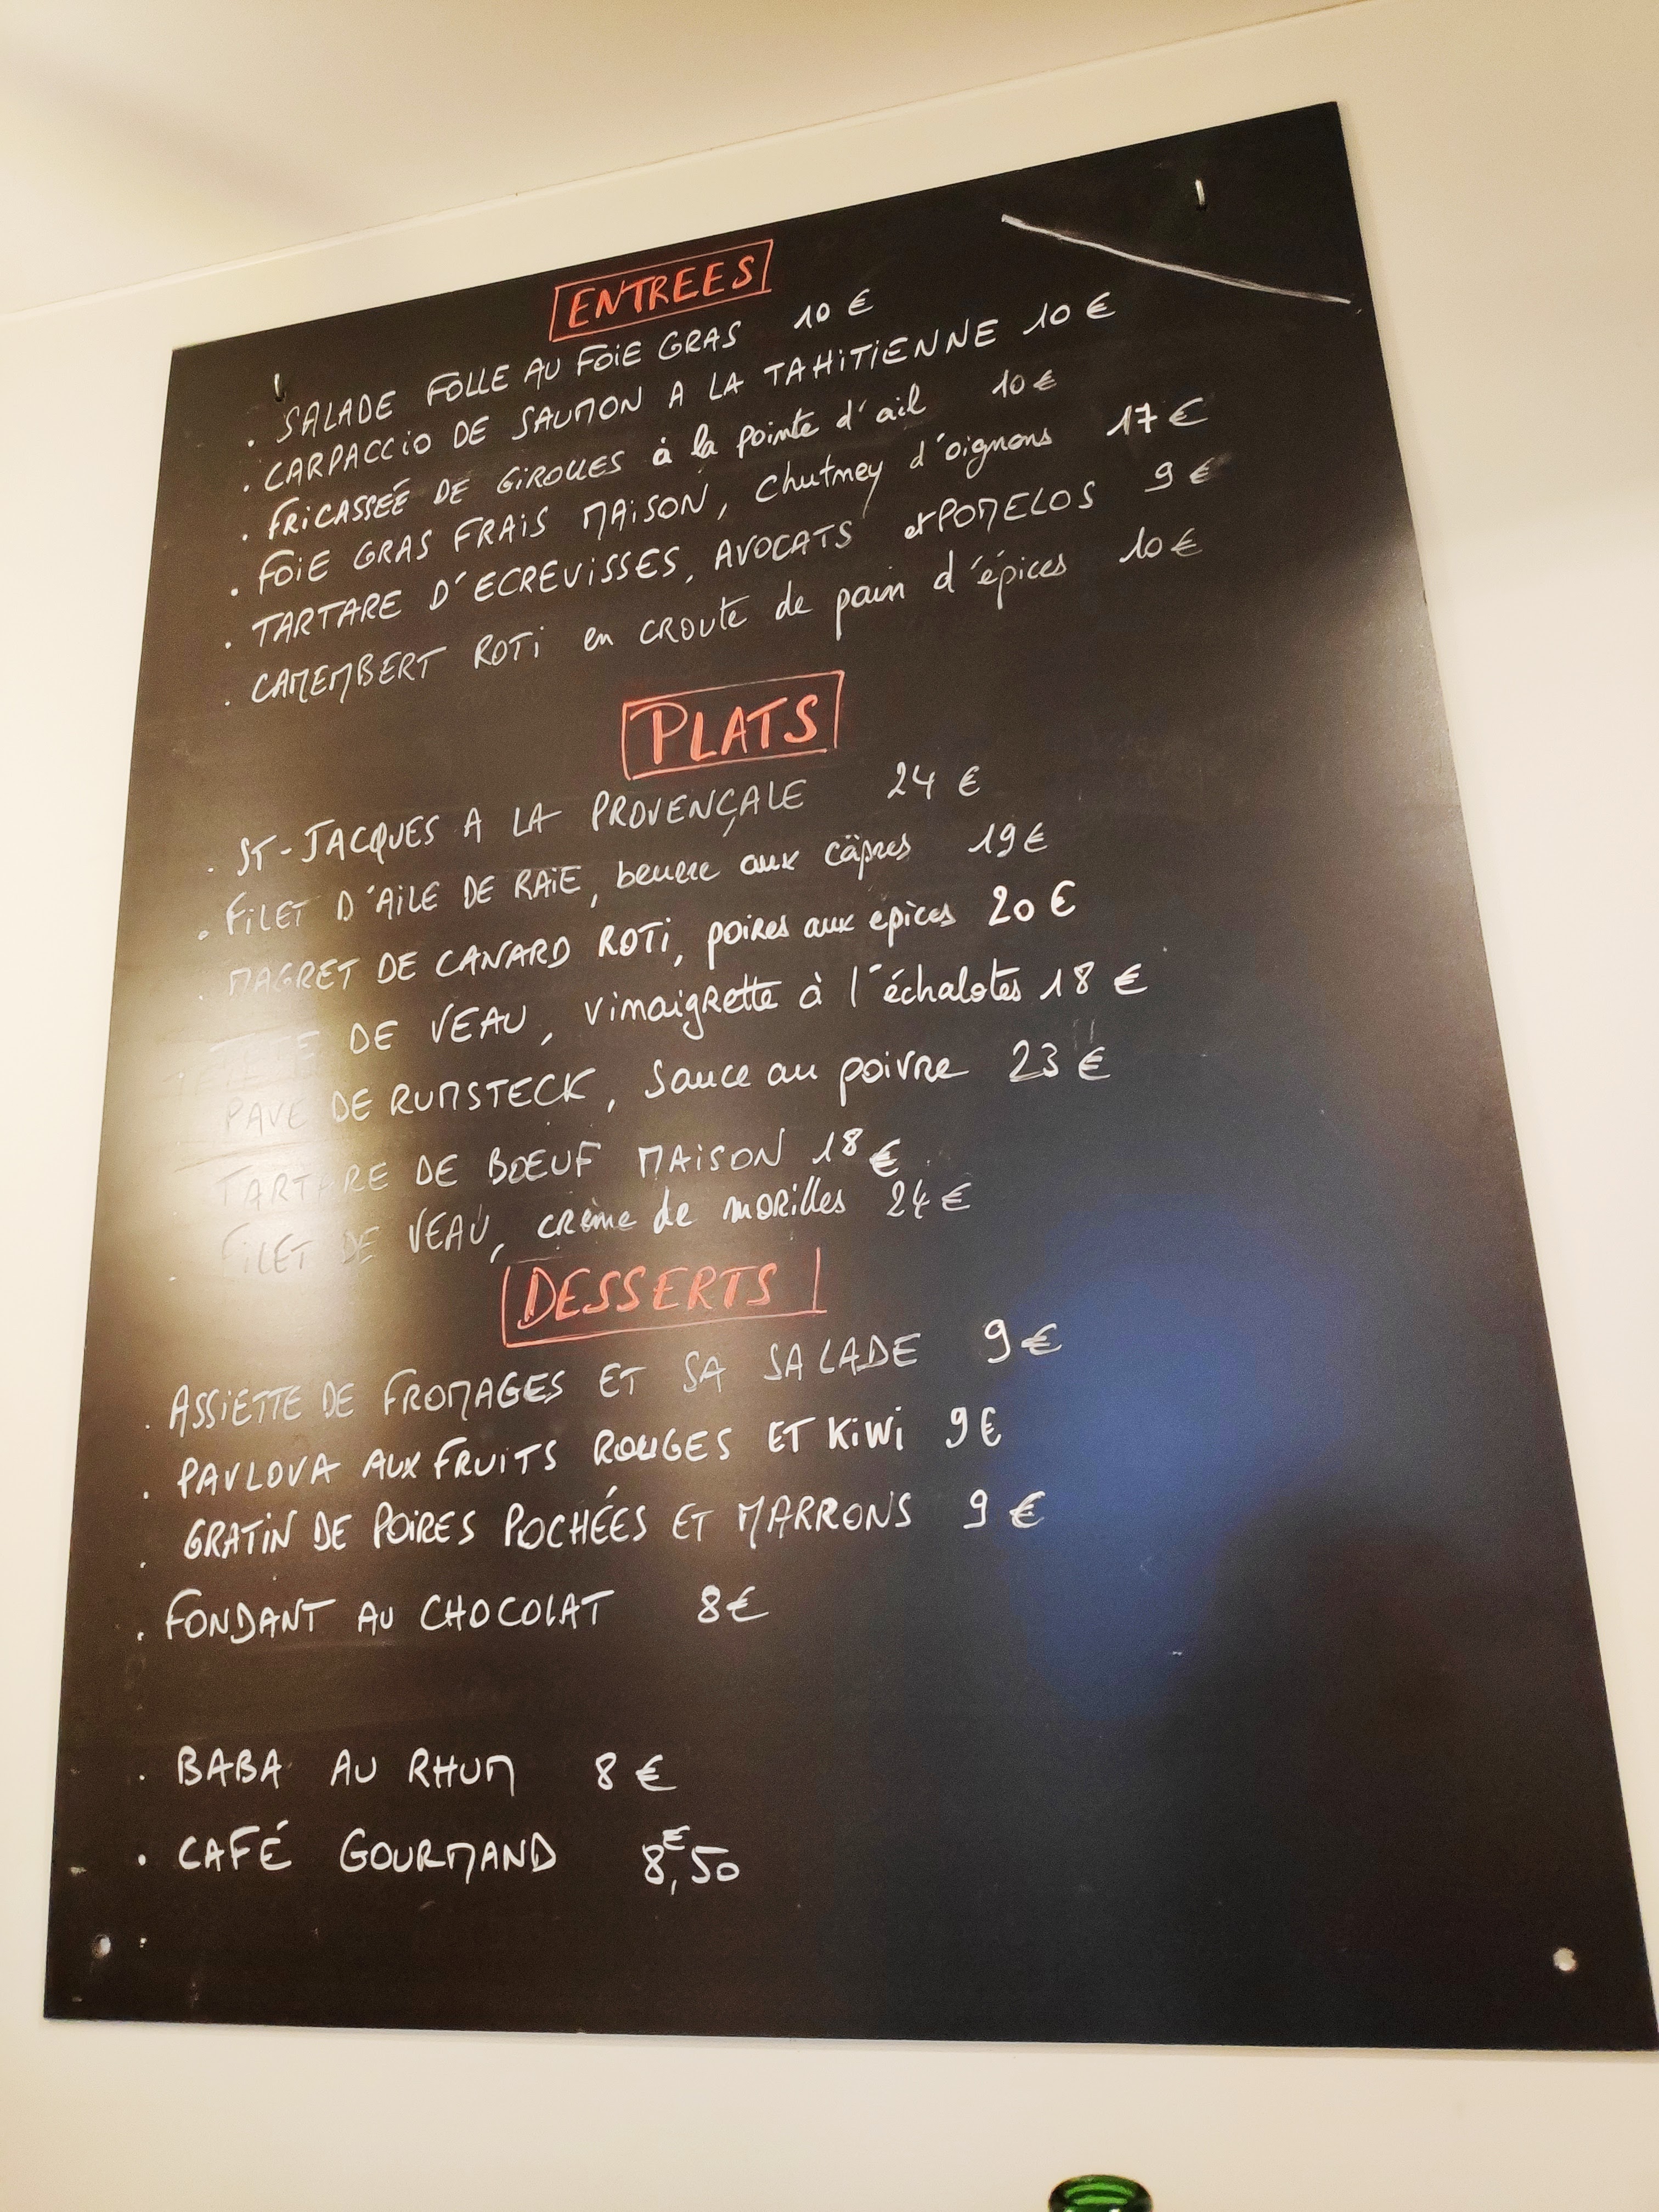 ENTREES
. SALADE FOLLE AU FOIE GRAS 10 €
. CARPACCIO DE SAUMON A LA TAHITIENNE 10 €
. FRICASSEÉ DE GIROLLES à la pointe d'ail 10 €
. FOIE GRAS FRAIS MAISON, chutney d'oignons 17 €
. TARTARE D'ECREVISSES, AVOCATS et POMELOS 9 €
. CAMEMBERT ROTI en CROUTE de pain d'épices 10 €
PLATS
. ST-JACQUES A LA PROVENÇALE 24 €
. FILET D'AILE DE RAIE, beurre aux câpres 19 €
. MAGRET DE CANARD ROTI, poires aux epices 20 €
. DE VEAU, vinaigrette à l'échalotes 18 €
PAVE DE RUMSTECK, Sauce au poivre 23 €
TARTARE DE BOEUF MAISON 18 €
. FILET DE VEAU, crème de morilles 24 €
DESSERTS
. ASSIETTE DE FROMAGES ET SA SALADE 9 €
. PAVLOVA AUX FRUITS ROUGES ET KIWI 9 €
. GRATIN DE POIRES POCHÉES ET MARRONS 9 €
. FONDANT AU CHOCOLAT 8 €
. BABA AU RHUM 8 €
. CAFÉ GOURMAND 8€,50